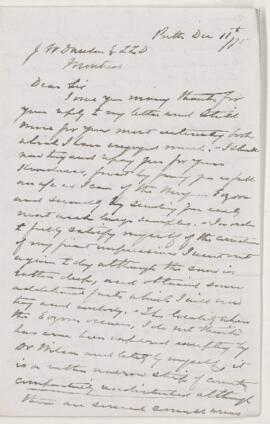 Perth Dec 11th / 75
J W Dawson Esq LLD
Montreal
Dear Sir
I owe you many thanks for
your reply to my letter and still
more for your most interesting book
which I have enjoyed much. I shall
now try and repay you for your
kindness, first by giving you as full
as I can of the
and secondly by sending you
large samples. In order
to fully satisfy myself of the
of my first impressions I went out
again to day although the snow is
deep, and obtained some
additional facts which I will now
try and embody. The locality where
the Eozoon occurs, I do not think
has ever been explored excepting by
Dr Wilson and lately by myself, it
is a rather narrow strip of country
comparatively undisturbed although
there are several small